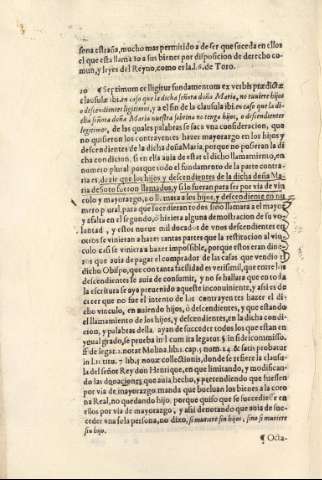 sona estraña, mucho mas permitido a de ser que suceda en ellos
el que esta llamado a sus bienes por disposicion de derecho co-
mun, y leyes del Reyno, como es la l. 6. de Toro.
20 ¶ Septimum elligitur fundamentum ex verbis prædictæ
clausulæ ibi en caso que la dicha señora doña Maria, no tuuiere hijos
o descendientes ligitimos, y a el fin de la clausula ibi en caso que la di-
cha señora doña Maria nuestra sobrina no tenga hijos, o descendientes
legitimos, de las quales palabras se saca vna consideracion, que
no quisieron los contrayentes hazer mayorazgo en los hijos y
descendientes de la dicha doña Maria, porque no pusieran la di
cha condicion. si en ella auia de estar el dicho llamamiento, en
numero plural. porque todo el fundamento de la parte contra-
ria es, dezir que los hijos y descendientes de la dicha doña Ma
ria de Soto fueron llamados, y si lo fueran para ser por via de vin
culo y mayorazgo, no llamara a los hijos, y descendiente en nu
mero plural. para que sucedieran todos sino llamara a el mayor
y a falta en el segundo, o hiziera alguna demostracion de su vo
luntad, y estos nueue mil ducados de
otros se vinieran a hazer tantas partes que la restitucion a el vin
culo casi se viniera a hazer impossible, porque estos eran dine
ros que auia de pagar el comprador de las casas que vendio el
dicho Obispo, que con tanta facilidad es verisimil, que entre los
descendientes se auia de consumir, y no se hallara que en toda
la escritura se aya preuenido a aqueste inconuiniente, y assi es de
creer que no fue el intento de los contrayentes hazer el di-
cho vinculo, en auiendo hijos, o descendientes, y que estando
el llamamiento de los hijos, y descendientes, en la dicha condi-
cion, y palabras della. ayan de succeder todos los que estan en
ygual grado, se prueba in l cum ita legatur. §. in fideicommisso.
ff de legat. 2. notat Molina lib. 1. cap. 5. num. 24. & satis probatur
in l. 11. titu. 7 lib. 5 nouæ collectionis, donde se refiere la clausu-
la del señor Rey don Henrique, en que limitando, y modifican-
do las donaciones que auia hecho, y pretendiendo que fuessen
por via de mayorazgo manda que bueluan los bienes a la coro
na Real, no quedando hijo. porque quiso que se sucediesse en
ellos por via de mayorazgo, y assi denotando que auia de suc-
ceder vna sola persona, no dixo, si muriere sin hijos, sino si muriere
sin hijo.
¶ Octa-